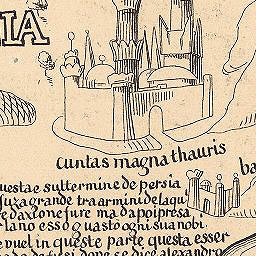 IA
cuntas magna thauris
ba
uesta e su ttermine de persia
suza grande tra armini de laqu
e daxione sure ma da poi presa
lano esso guasto ogni sua nobi
e vuel in queste parte questa esser
dove se dice alexandro